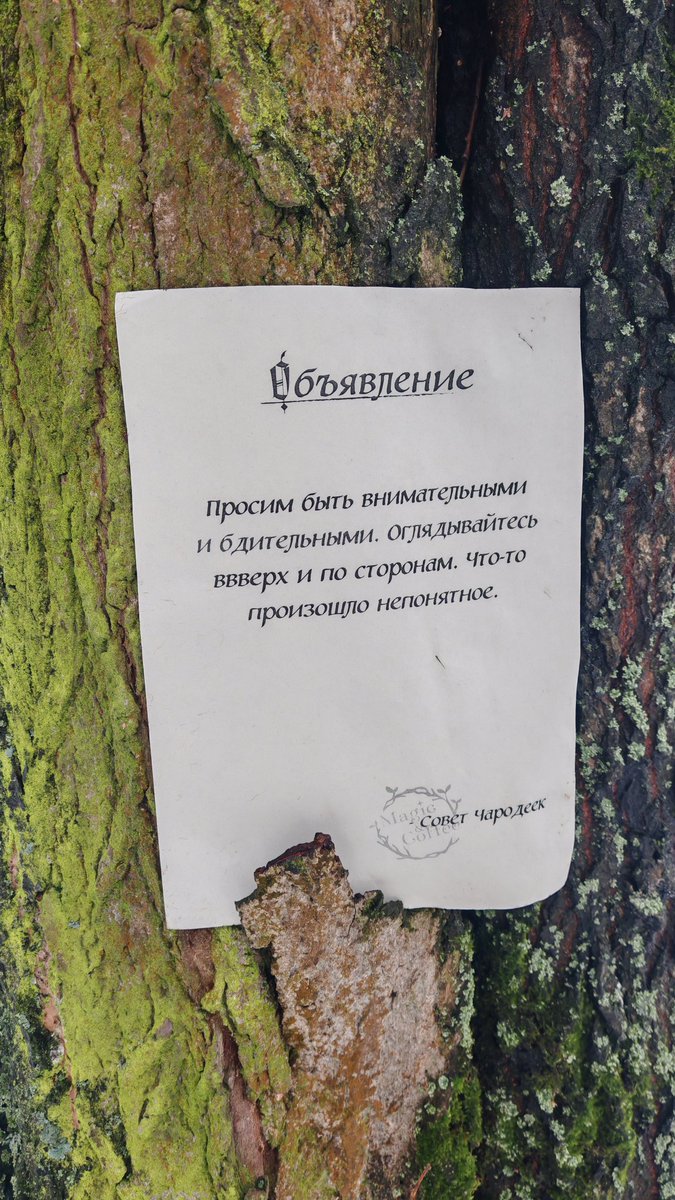 Объявление
Просим быть внимательными
и бдительными. Оглядывайтесь
ввверх и по сторонам. Что-то
произошло непонятное.
Magic
&
Coffee
Совет Чародеек